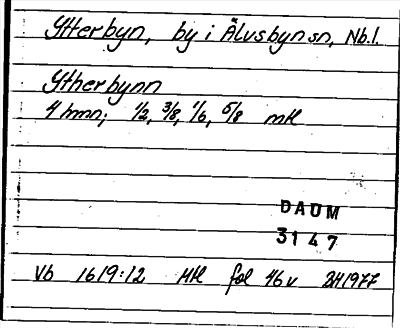 Ytterbyn, by i Älvsbyn sn, Nb.l.
Ytherbynn
4 hmn; 1/2, 3/8, 1/6, 5/8 mtl
DAUM
3147
Vb 1619:12 Mtl fol 46v BH1977